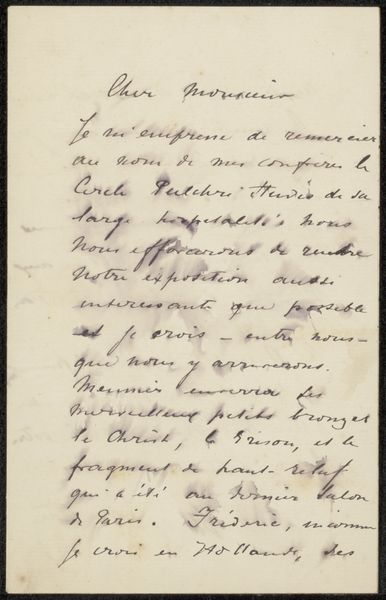 Cher Monsieur
Je m'empresse de remercier
au nom de mes confreres le
Cercle Pulchri Studio de sa
large hospitalité. Nous
nous efforcerons de rendre
notre exposition aussi
interessante que possible
et je crois – entre nous –
que nous y arriverons.
Meunier enverra ses
merveilleux petits bronzes
le Christ, le Grison, et le
fragment de haut-relief
qui a été au dernier Salon
de Paris. Fréderic, inconnu
je crois en Hollande, des